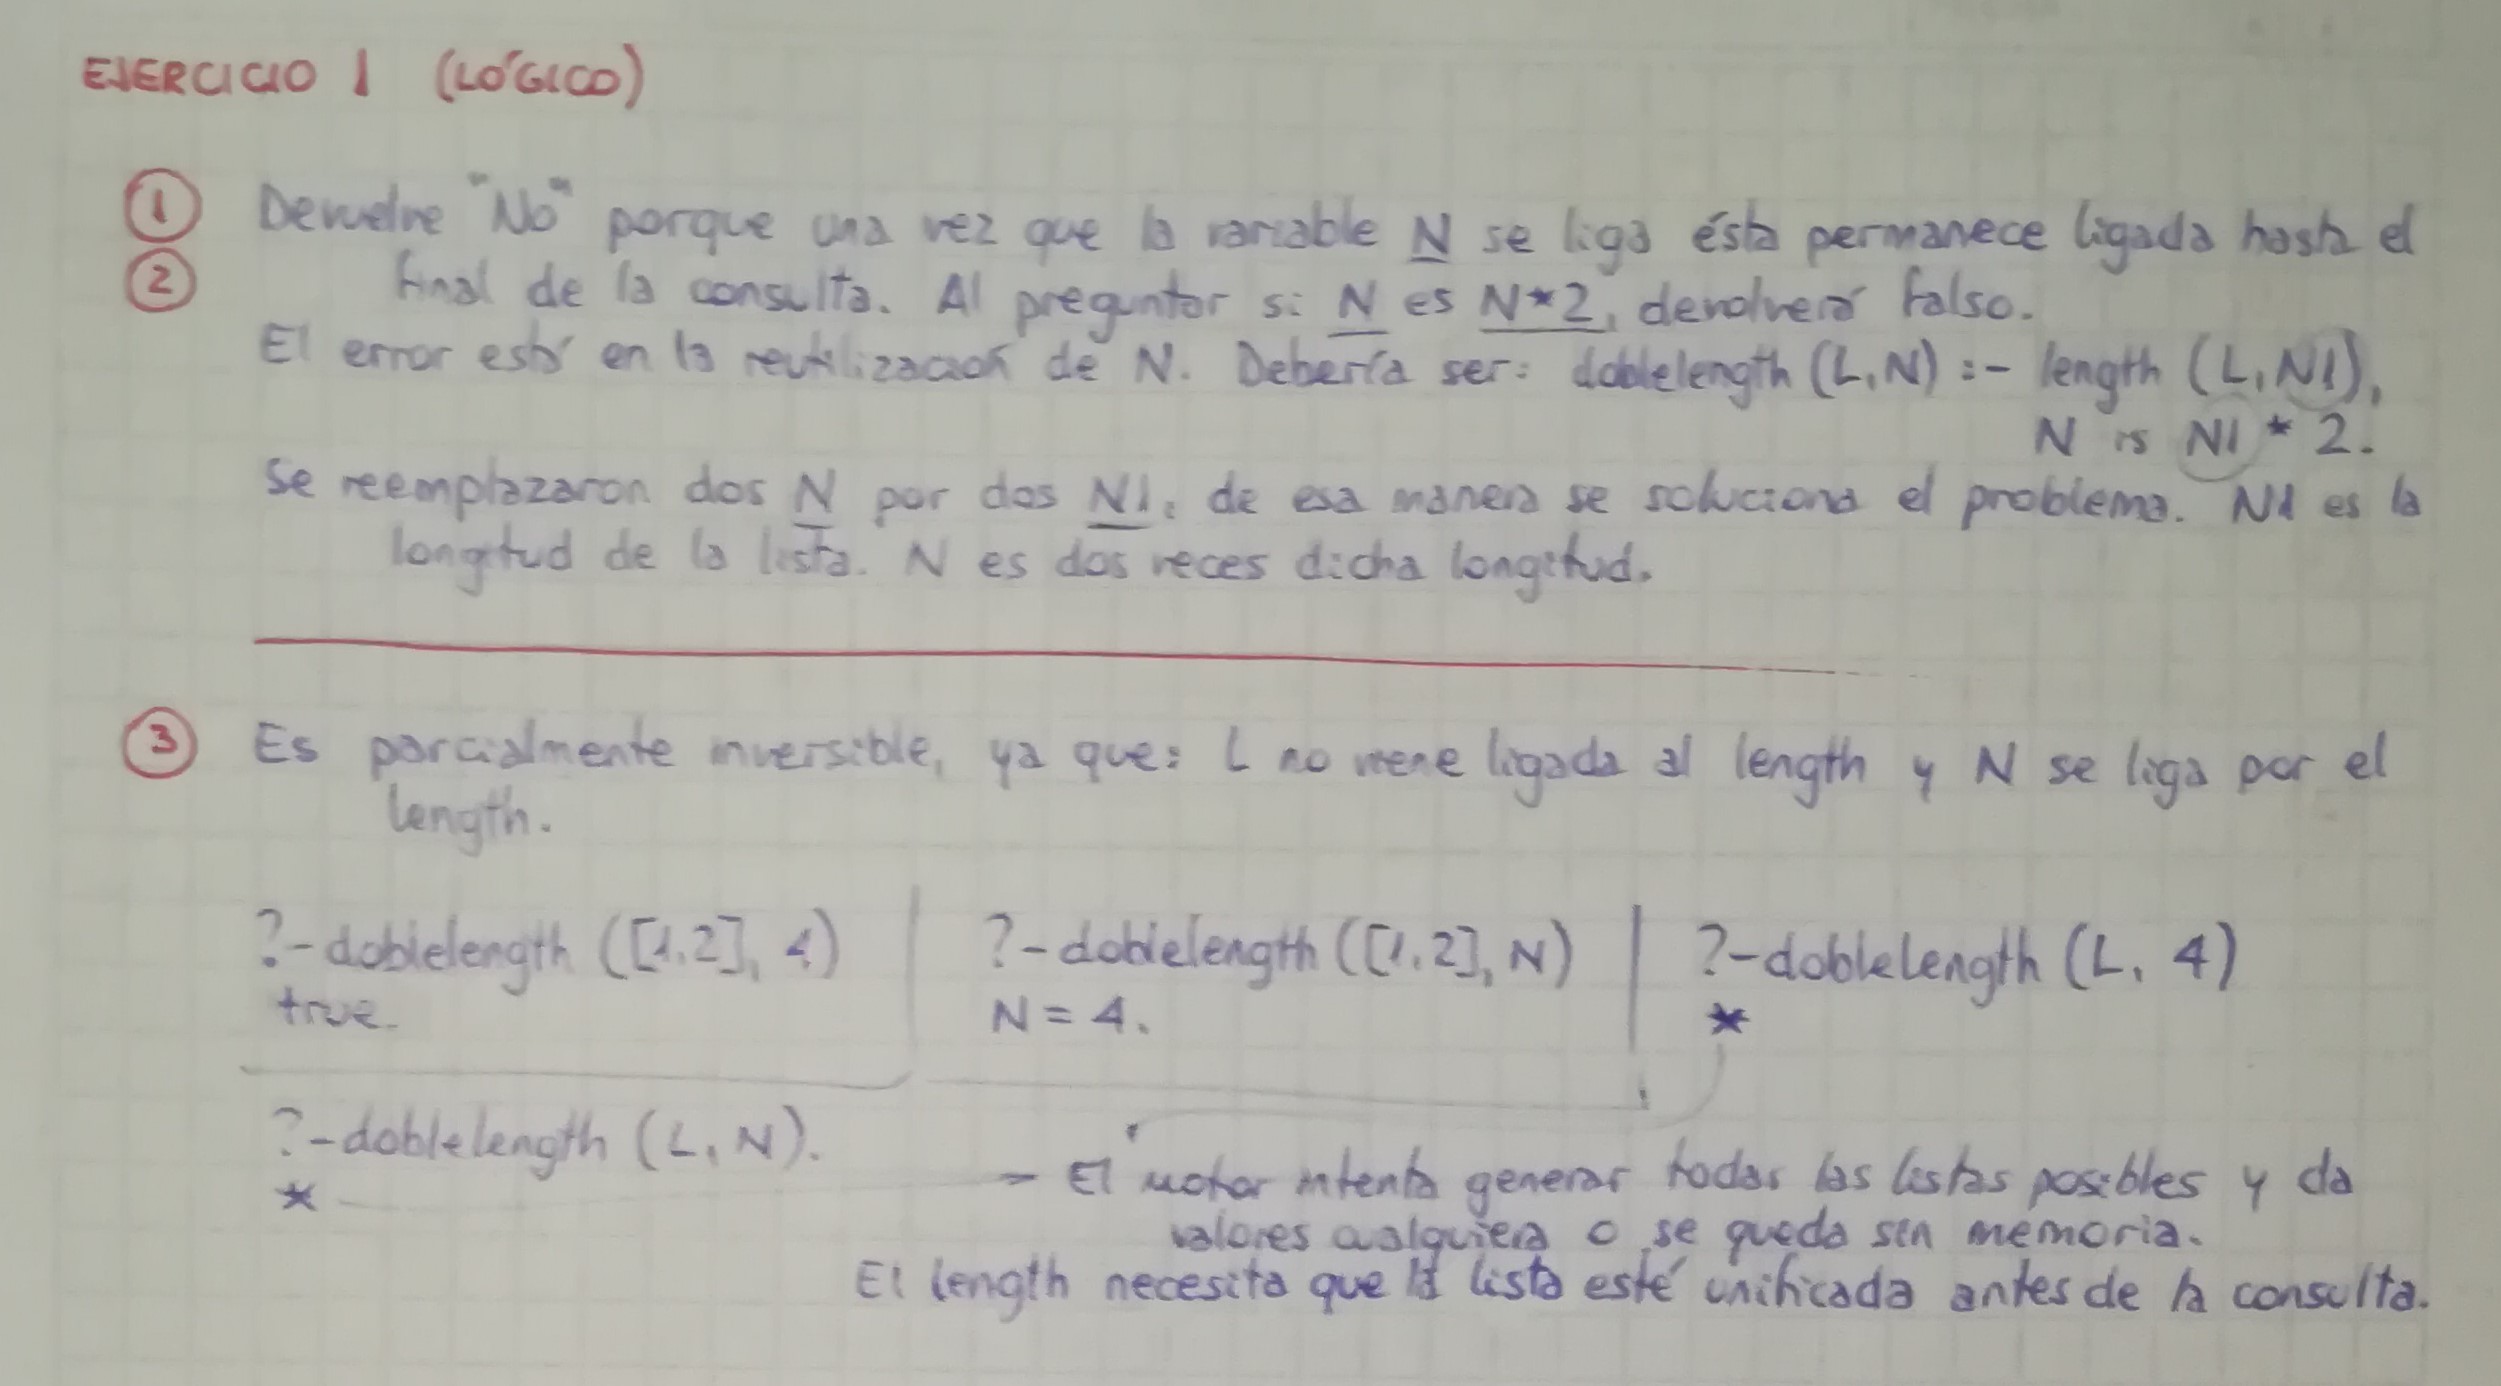 EJERCICIO 1 (LÓGICO)
① Devuelve "No" porque una vez que la variable N se liga ésta permanece ligada hasta el
② final de la consulta. Al preguntar si N es N*2, devolverá falso.
El error está en la reutilización de N. Debería ser: doblelength (L,N) :- length (L,N1),
N is N1 * 2.
Se reemplazaron dos N por dos N1, de esa manera se soluciona el problema. N1 es la
longitud de la lista. N es dos veces dicha longitud.
③ Es parcialmente inversible, ya que: L no viene ligada al length y N se liga por el
length.
?-doblelength ([1,2], 4) ?-doblelength ([1,2], N) ?-doblelength (L, 4)
true. N = 4. *
?-doblelength (L, N).
* - El motor intenta generar todas las listas posibles y da
valores cualquiera o se queda sin memoria.
El length necesita que la lista esté unificada antes de la consulta.